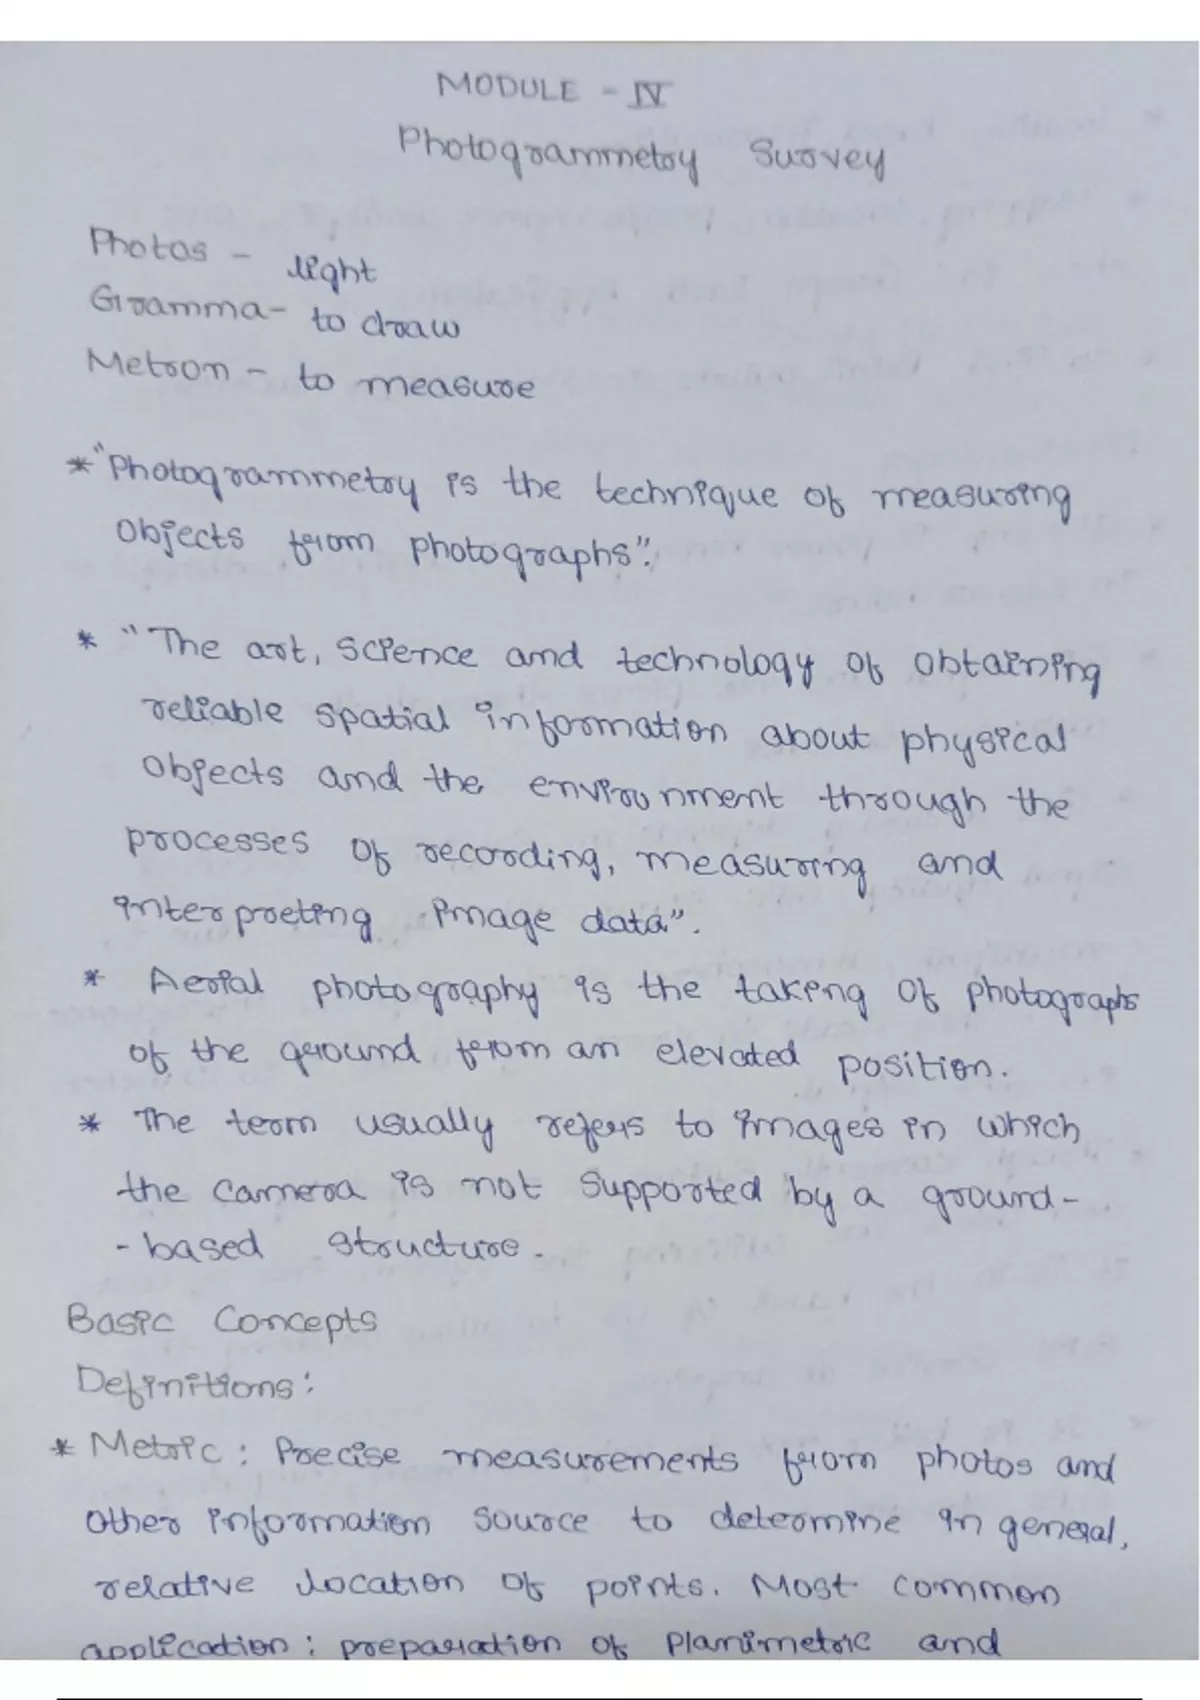 MODULE - IV
Photogrammetry Survey
Photos - light
Gramma - to draw
Metron - to measure
* "Photogrammetry is the technique of measuring
objects from photographs".
* "The art, science and technology of obtaining
reliable spatial information about physical
objects and the environment through the
processes of recording, measuring and
interpreting image data".
* Aerial photography is the taking of photographs
of the ground from an elevated position.
* The term usually refers to images in which
the camera is not supported by a ground-
-based structure.
Basic Concepts
Definitions:
* Metric: Precise measurements from photos and
other information source to determine in general,
relative location of points. Most common
application: preparation of planimetric and